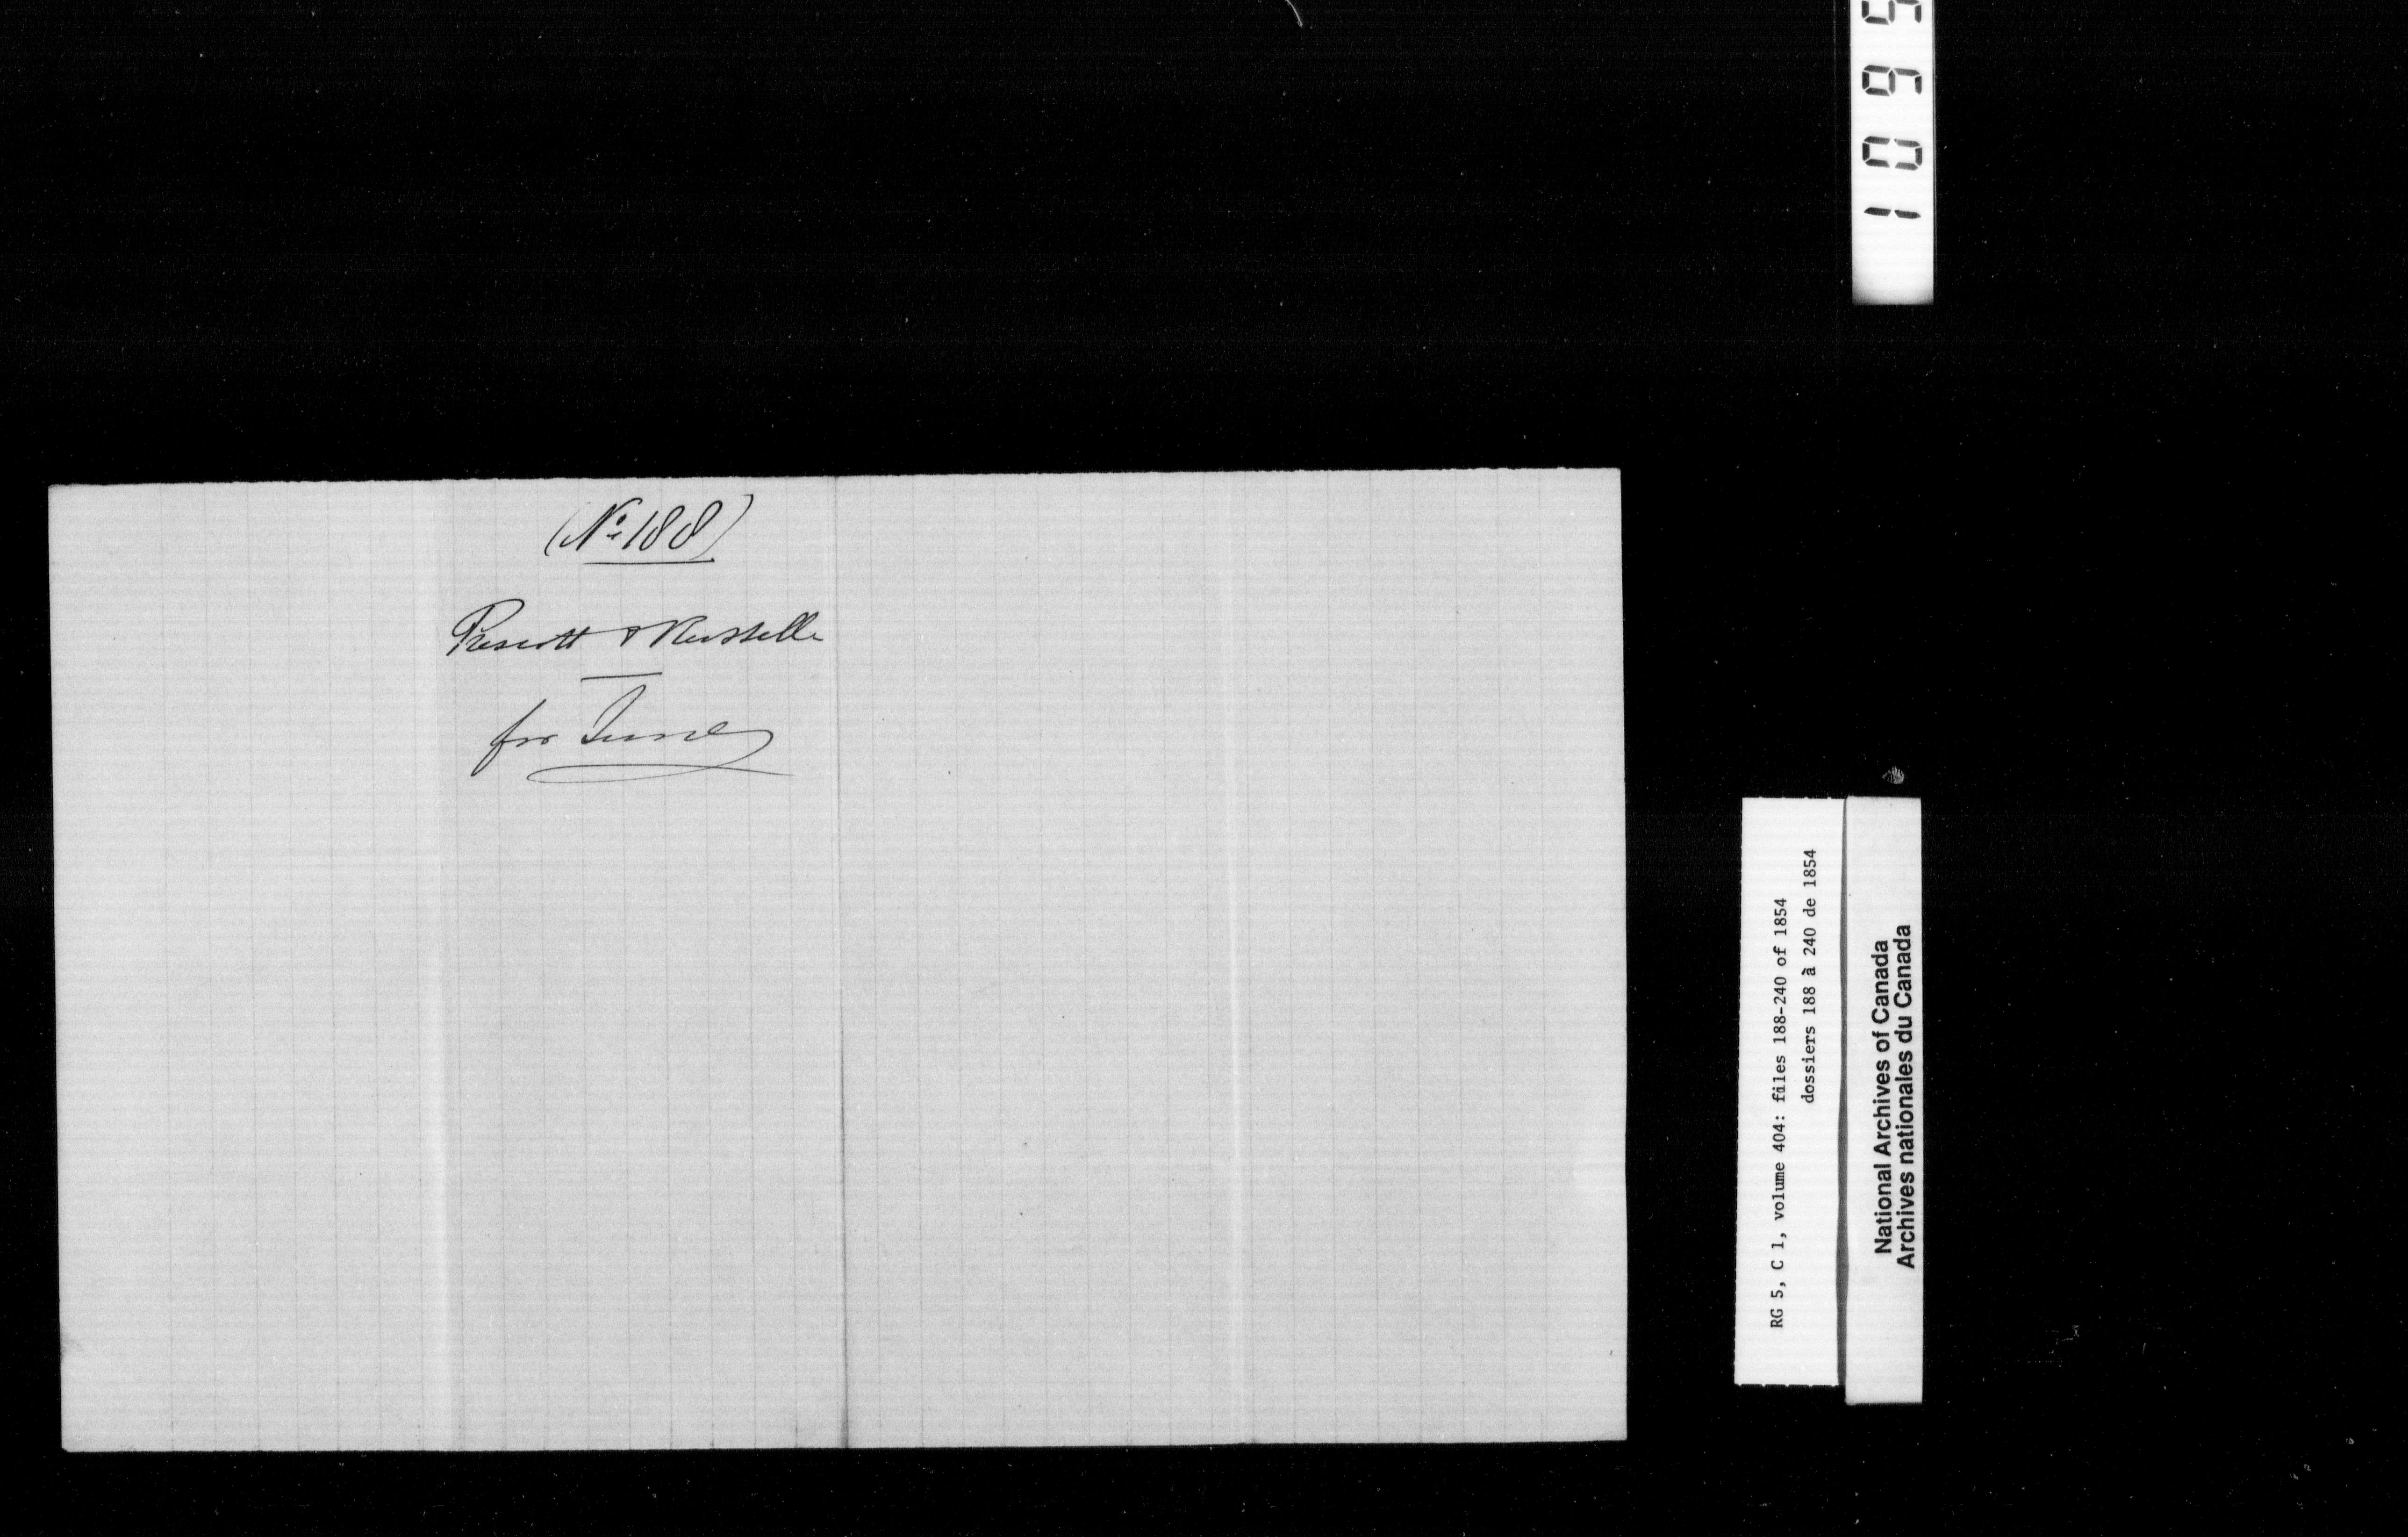 (No. 188)
Prescott & Russell
for June
RG 5, C 1, volume 404: files 188-240 of 1854
dossiers 188 à 240 de 1854
National Archives of Canada
Archives nationales du Canada
1095